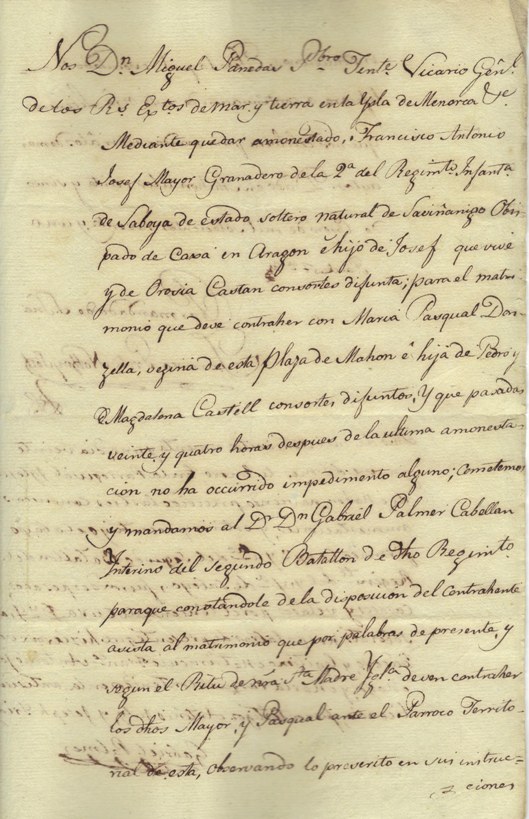 Nos Dn. Miguel Panedas Pbro. Tente. Vicario Genl.
de los Rs. Extos de mar, y tierra en la Ysla de Menorca &c.
Mediante quedar amonestado, Francisco Antonio
Josef Mayor Granadero de la 2a. del Regimto. Infanta.
de Saboya de estado soltero natural de Saviñanigo Obis
pado de Caxa en Aragon é hijo de Josef que vive
y de Orosia Castan consortes difunta; para el matri
monio que deve contraher con Maria Pasqual Don
zella, vezina de esta Plaza de Mahon é hija de Pedro y
Magdalena Castell consortes difuntos, Y que pasadas
veinte, y quatro horas despues de la ultima amonesta
cion no ha occurrido impedimento alguno; cometemos
y mandamos al Dr. Dn. Gabriel Palmer Cabellan
Interino del segundo Batallon de dho Regimto.
paraque constándole de la disposicion del Contrahente
asista al matrimonio que por palabras de presente, y
segun el Ritu de nra Sta. Madre Jgla. deven contraher
los dhos Mayor, y Pasqual ante el Parroco Territo-
rial de esta, observando lo prescrito en sus instruc=
ciones